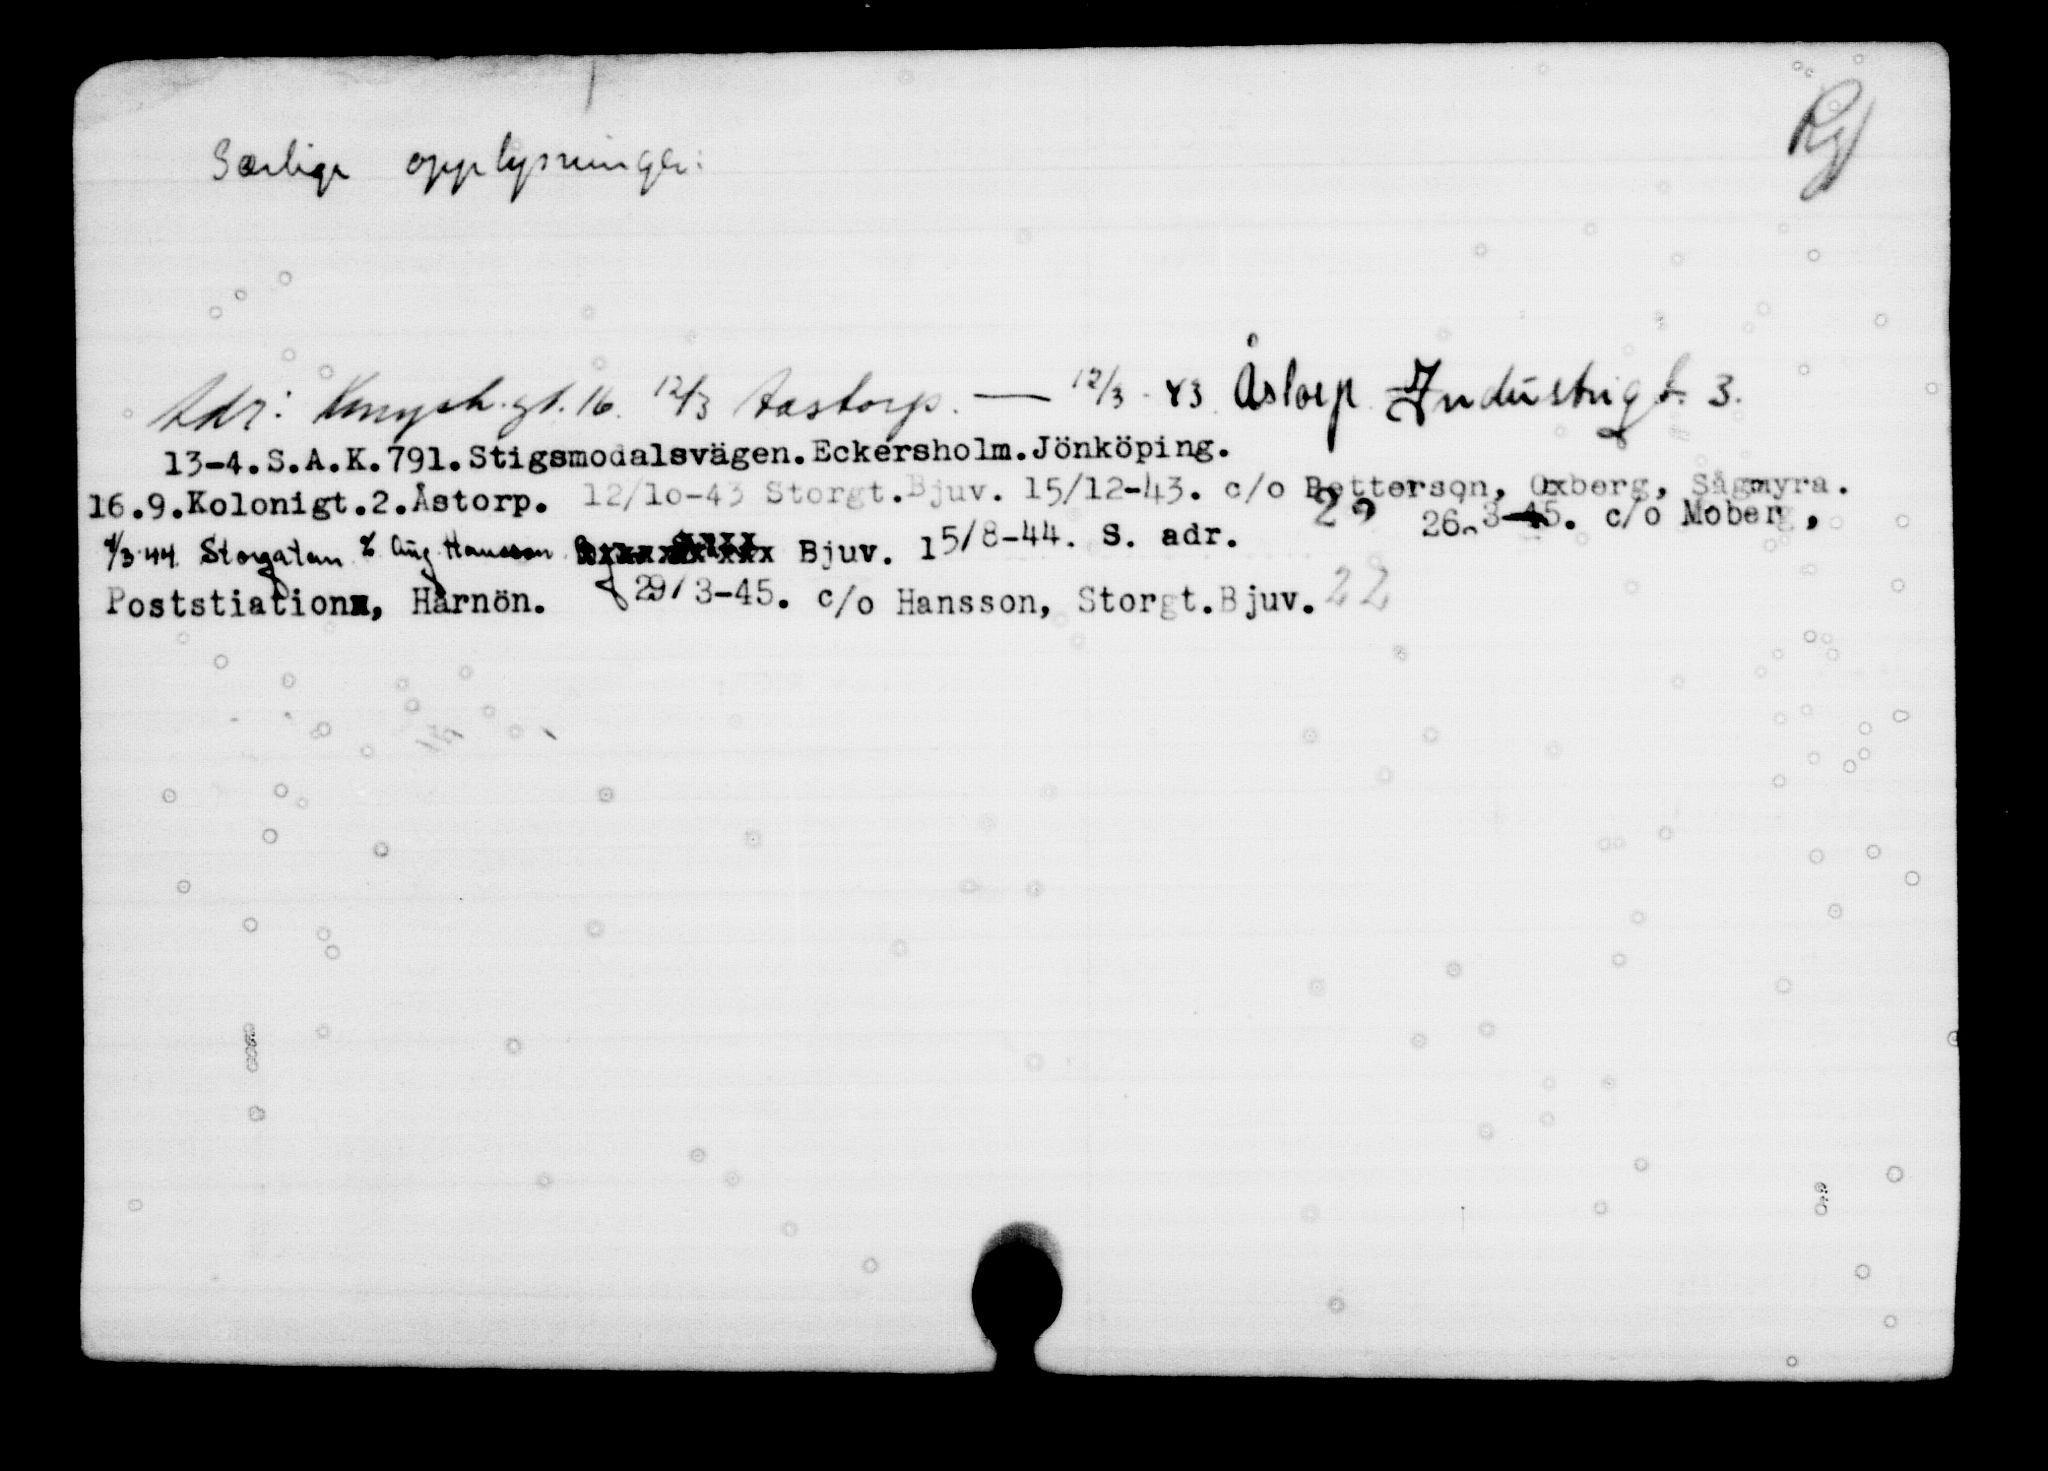 Rg
Særlige opplysninger:
Adr: Kungsh.gt. 16. 12/3 Aastorp. — 12/3 - 43 Åstorp Industrigt. 3.
13-4.S.A.K.791.Stigsmodalsvägen.Eckersholm.Jönköping.
16.9.Kolonigt.2.Åstorp. 12/10-43 Storgt.Bjuv. 15/12-43. c/o Petterson, Oxberg, Sågmyra.
4/3-44 Storgatan c/o Aug Hansson Bjuv. 15/8-44. S. adr. 22 26.3-45. c/o Moberg,
Poststiation, Härnön. 29/3-45. c/o Hansson, Storgt.Bjuv. 22